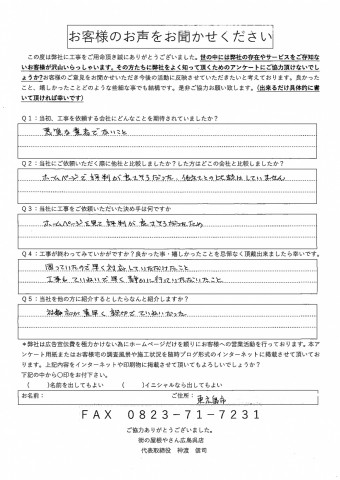 お客様のお声をお聞かせください
この度は弊社に工事をご用命頂き誠にありがとうございました。世の中には弊社の存在やサービスをご存知ない
お客様が沢山いらっしゃいます。その方たちに弊社をよく知って頂くためのアンケートにご協力頂けないでし
ょうか?お客様のご意見をお聞かせいただき今後の活動に反映させていただきたいと考えております。良かった
こと、嬉しかったことどのような些細な事でも結構です。是非ご協力お願い致します。(出来るだけ具体的に書
いて頂ければ幸いです)
Q1:当初、工事を依頼する会社にどんなことを期待されていましたか?
悪質な業者でないこと
Q2:当社にご依頼いただく際に他社と比較しましたか?した方はどこの会社と比較しましたか?
ホームページで評判が良さそうだった、他社との比較はしていません
Q3:当社に工事をご依頼いただいた決め手は何ですか
ホームページを見て評判が良さそうだったため
Q4:工事が終わってみていかがですか?良かった事・嬉しかったことを忌憚なく頂戴出来ましたら幸いです。
困っていたので早く対応していただけたこと
工事もていねいで早く静かに行っていただいたこと
Q5:当社を他の方に紹介するとしたらなんと紹介しますか?
対応が素早く親切でていねいだった
*弊社は広告宣伝費を極力かけない為にホームページだけを頼りにお客様への営業活動を行っております。本ア
ンケート用紙またはお客様宅の調査風景や施工状況を随時ブログ形式のインターネットに掲載させて頂いてお
ります。上記内容をインターネットや印刷物に掲載させて頂いてもよろしいでしょうか?
下記の中から〇印をお付下さい。
( )名前を出してもよい ( )イニシャルなら出してもよい
お名前: ご住所: 東広島市
FAX 0823-71-7231
ご協力ありがとうございました。
街の屋根やさん広島呉店
代表取締役 神渡 信司